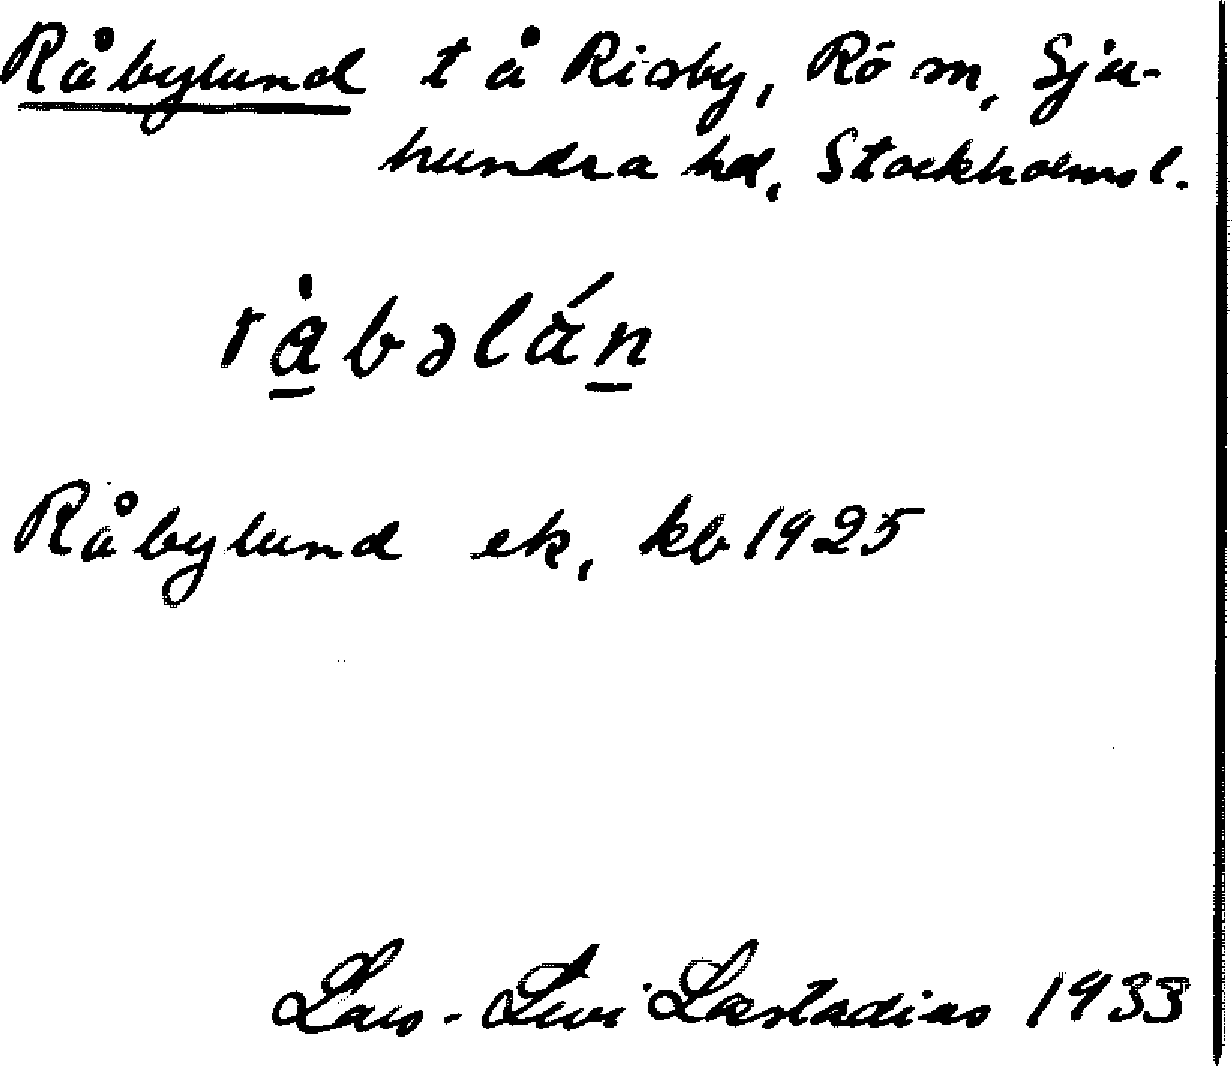 Råbylund t å Risby, Rö sn, Sju-
hundra hd, Stockholms l.
rå̀bəlán
Råbylund ek, kb 1925
Lars-Levi Læstadius 1933